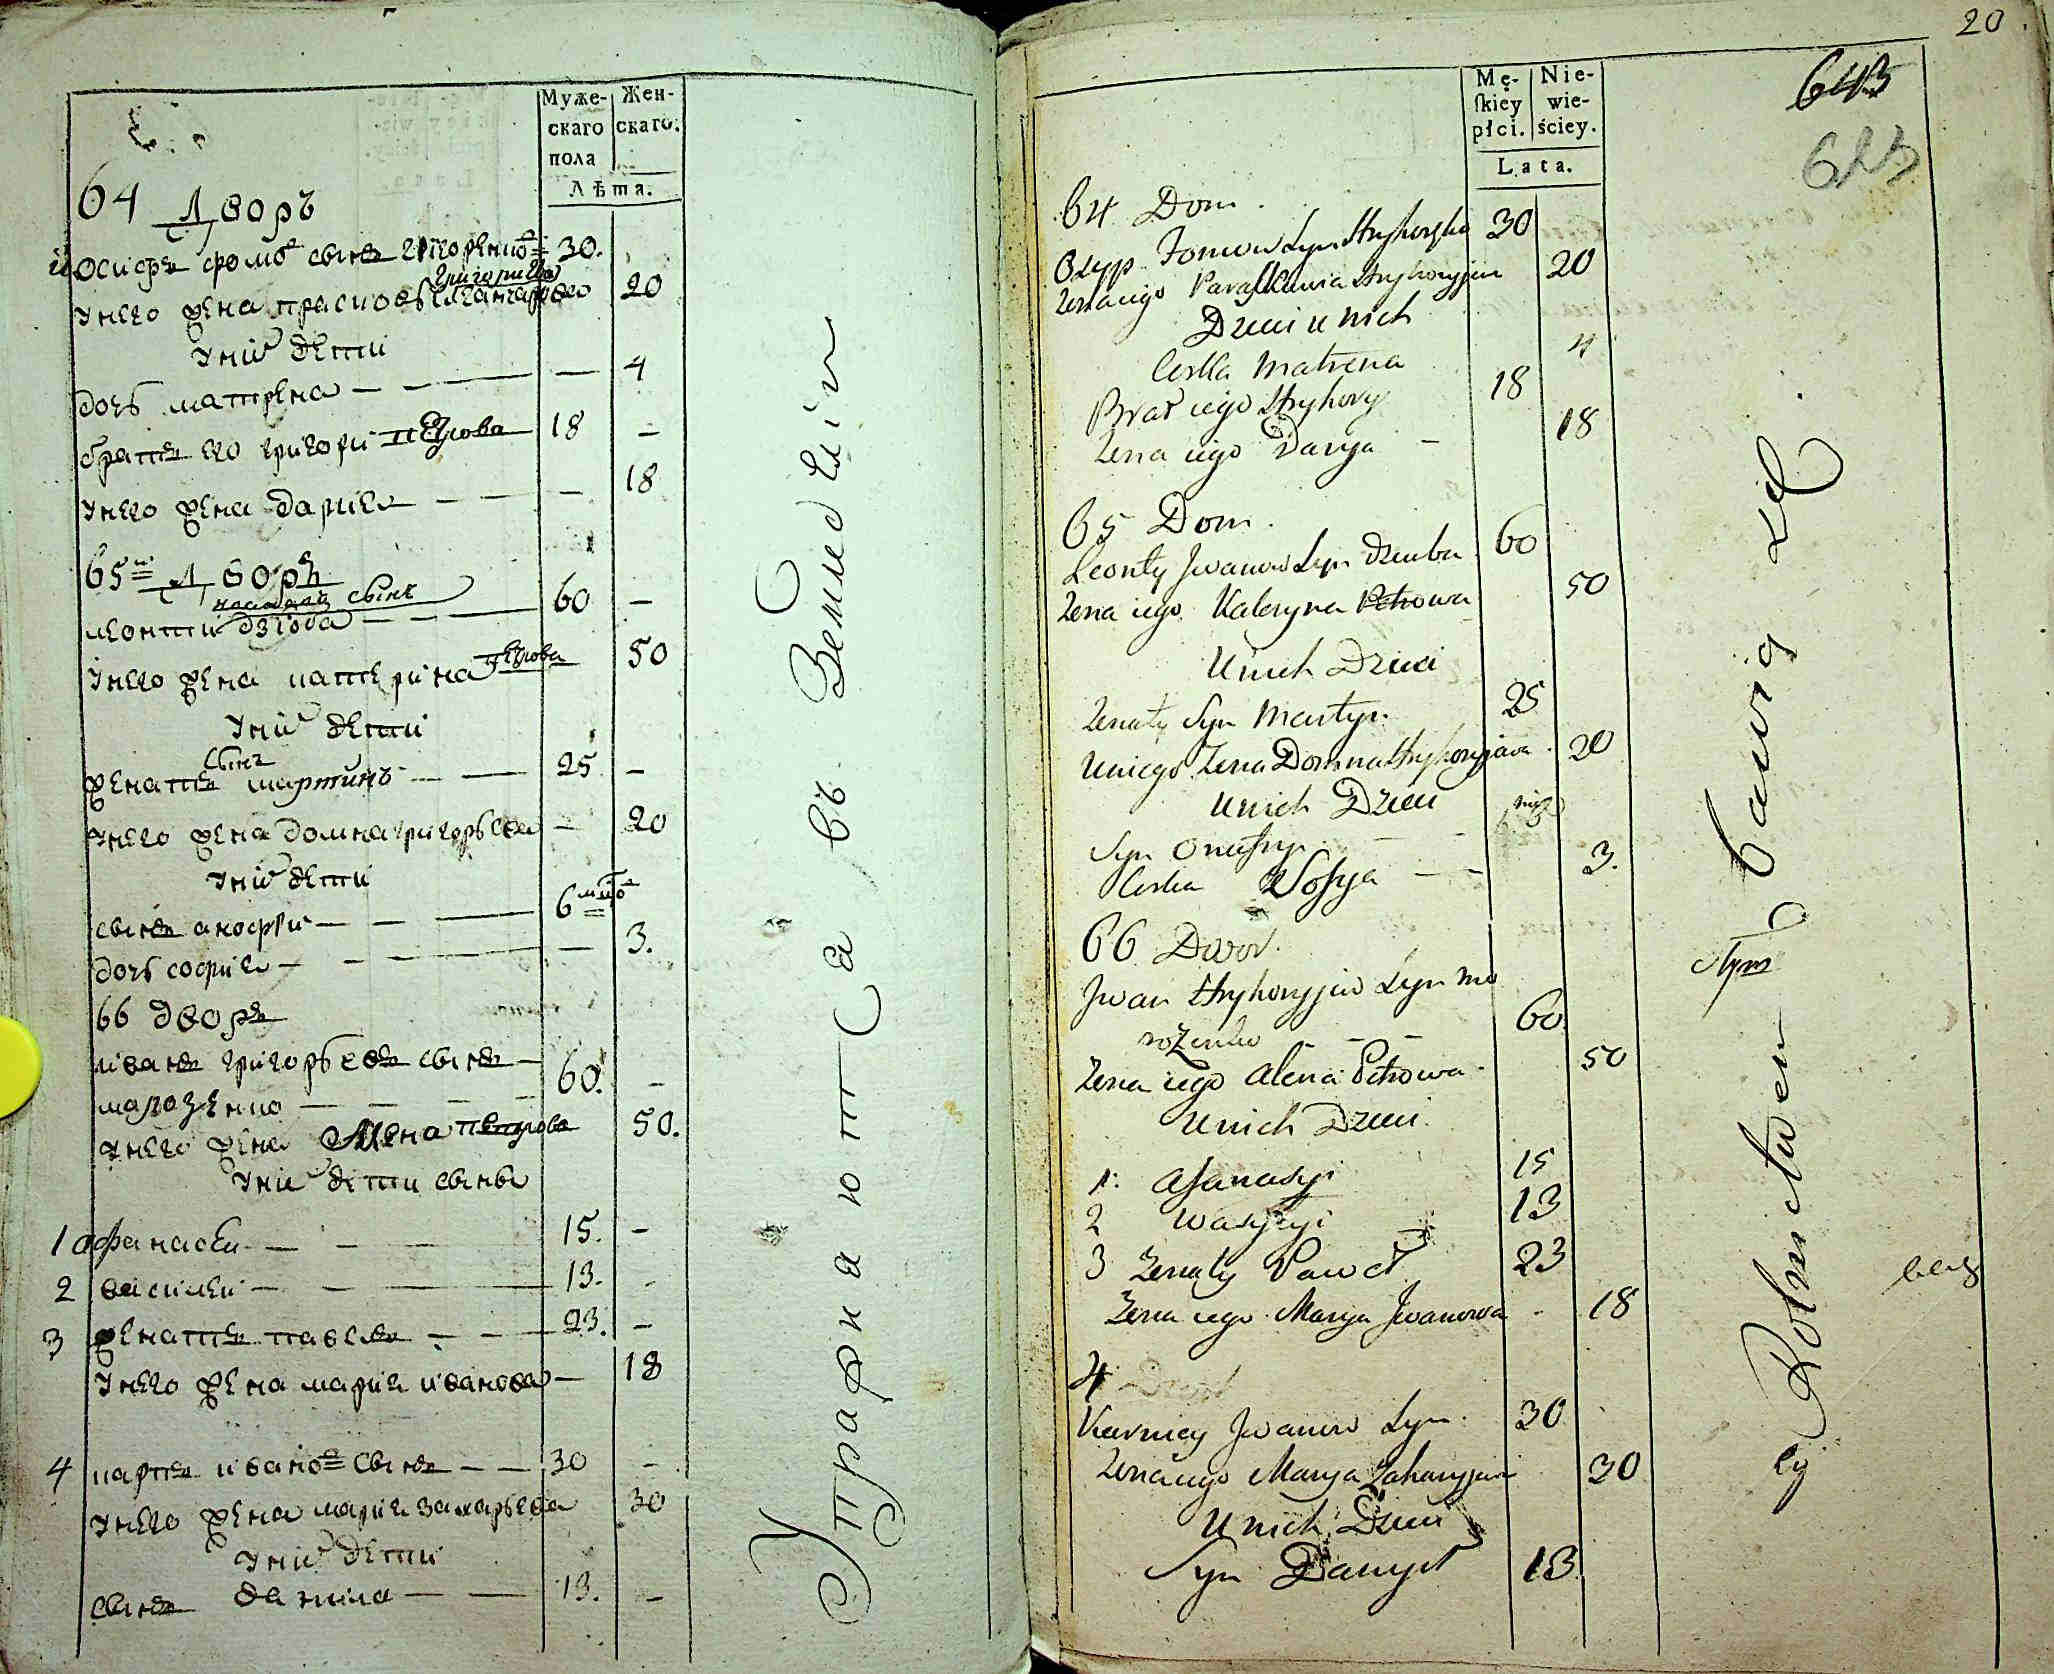 Муже-
скаго
пола
Жен-
скаго.
Лѣта.
64 Дворъ
иосифъ фомо сынъ григоренко 30.
унего жена прасковя григориева 20
уних дети
дочь матрена — — — 4
братъ его григори петрова 18 —
унего жена дариа — — 18
65 Дворъ
сынъ
леонти дзюба — — 60 —
унего жена катерина петрова 50
уних дети
сынъ
женатъ мартинъ — — 25 —
унего жена домна григорьева — 20
уних дети
сынъ анофри — — — 6
дочь софиа — — — 3.
66 дворъ
иванъ григорьевъ сынъ —
марозенко — — — 60. —
унего жена Алена петрова 50.
уних дети сыны
1 афанасеи — — — 15. —
2 василеи — — — 13. -
3 женатъ павелъ — — 23. —
унего жена мариа иванова — 18
4 карпъ ивано сынъ — — 30 —
унего жена мариа захарьева 30
уних дети
сынъ данила — — 13. —
Упражняются въ Земледелии
20.
643
Mę-
ſkiey
płci.
Nie-
wie-
ściey.
Lata.
64 Dom.
Osyp Fomow Syn Hryhoryka 30
Zena iego Paraſkawia Hryhoryjewa 20
Dzieci u nich
Corka Matrena 4
Brat iego Hryhory 18
Zena iego Darya — 18
65 Dom.
Leonty Jwanow Syn Dziuba 60
Zena iego Kateryna Petrowa 50
U nich Dzieci
Zenaty Syn Martyn. 25
U niego Zena Domna Hryhoryjewa 20
U nich Dzieci
Syn Onufry — —
Corka Sofya — — 3.
66 Dwor.
Jwan Hryhoryjew Syn Mo
rozenko — — 60.
Zena iego Alena Petrowa. 50
U nich Dzieci.
1. Afanasyi 15
2 Wasilyi 13
3 Zenaty Paweł 23
Zena iego Marya Jwanowa - 18
4
Karney Jwanow Syn. 30
Zena iego Marya Zaharyjewa 30
U nich Dzieci
Syn Danyło 13.
Rolnictwem bawią się